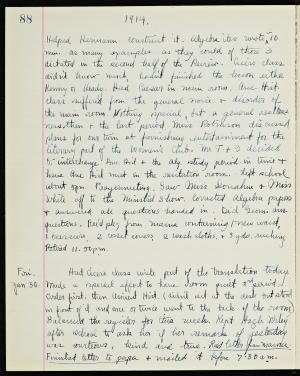 88 1914.
Helped Hermann construct it. Algebra class wrote, 10
min. as many examples as they could of those I
dictated in the second half of the Review. Cicero class
didn't know much, hadn't finished the lesson either
Kenny or Heady. Had Caesar in main room. Anc. Hist.
class suffered from the general noise & disorder of
the main room. Nothing special, but a general restless-
ness, then & the last period. Miss Robinson discussed
plans for our turn at furnishing entertainment for the
literary part of the Women's Club. Mr. T & I decided
to interchange Anc. Hist & the alg. study period in time &
have Anc Hist meet in the recitation room. Left school
about 5pm. Saw Miss Donahue & Miss
White off to the Minstrel Show. Corrected Algebra papers
& answered all questions handed in. Did Geom. also
questions. Rec'd pkg from mama containing 1 new waist,
2 corset covers, 2 wash cloths, & 3 yds. ruching
Retired 11.50 pm.
Fri. Had Cicero class write part of the translation today.
Jan 30. Made a special effort to have room quiet 3rd period.
Order first, then Ancient Hist. (I didn't sit at the desk but stood
in front of it and one or three went to the back of the room)
Balanced the register for two weeks. Kept Hazel Wiley
after school to ask her if her remarks of yesterday
was courteous, kind and true. Rec'd letter from mama
Finished letter to papa & mailed it before 7:30 a.m.